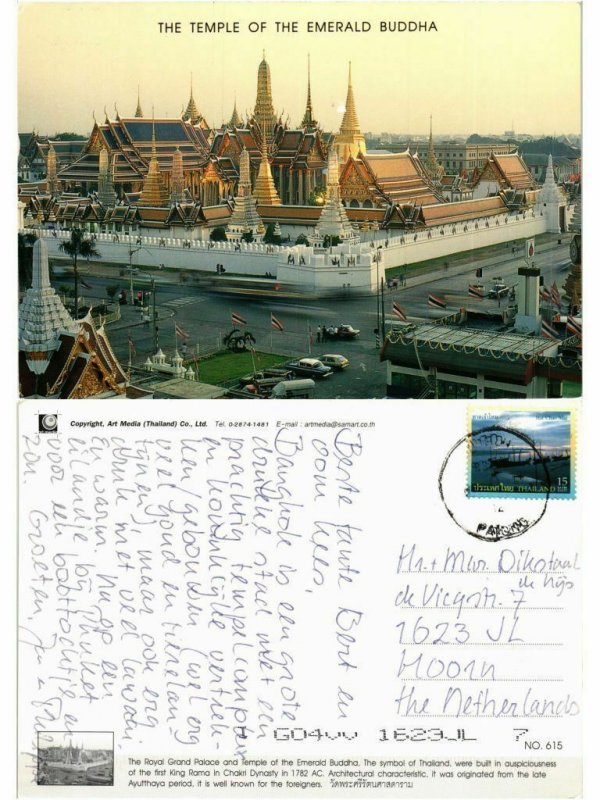 THE TEMPLE OF THE EMERALD BUDDHA
Copyright, Art Media (Thailand) Co., Ltd. Tel. 0-2874-1481 E-mail : artmedia@samart.co.th
Beste tante Bert en
oom Kees,
Bangkok is een grote
drukke stad met een
prachtig tempelcomplex
en koninklijke vertrek-
ken/gebouwen (wel erg
veel goud en
maar ook erg
druk met veel lawaai.
En warm. Nu op een
eilandje bij Phuket
voor een boottochtje en
zon. Groeten,
15
ประเทศไทย THAILAND
PATONG
Hr. + Mw. Dikstaal
de Nijs
de Vicqstr. 7
1623 JL
HOORN
the Netherlands
1623JL 7
NO. 615
The Royal Grand Palace and Temple of the Emerald Buddha, The symbol of Thailand, were built in auspiciousness
of the first King Rama in Chakri Dynasty in 1782 AC. Architectural characteristic, it was originated from the late
Ayutthaya period, it is well known for the foreigners. วัดพระศรีรัตนศาสดาราม